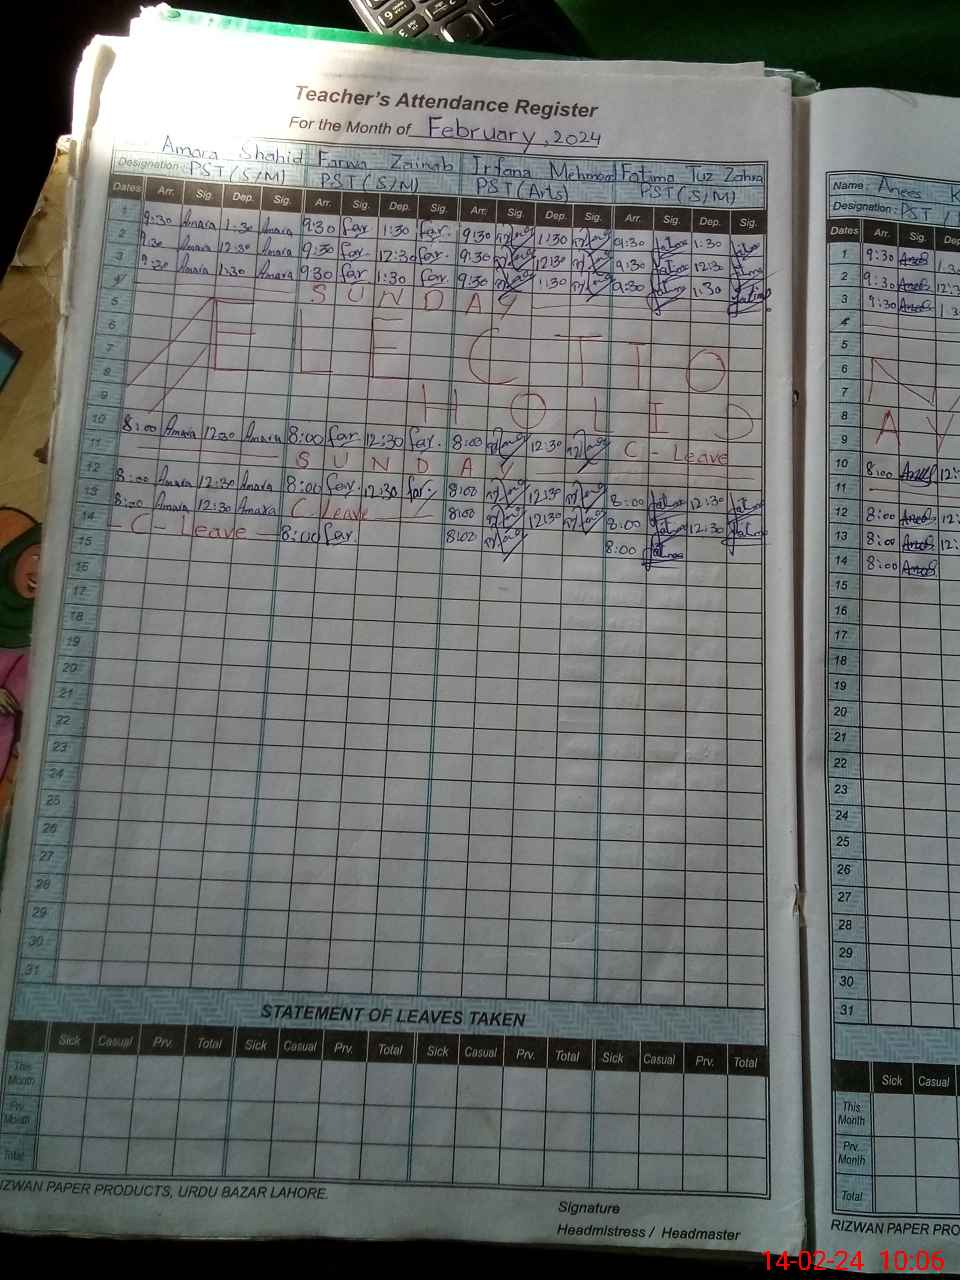 Teacher's Attendance Register
For the Month of February, 2024
Amara Shahid Farwa Zainab Irfana Mehmood Fatima Tuz Zahra
Designation: PST (S/M) PST (S/M) PST (Arts) PST (S/M)
Dates Arr. Sig. Dep. Sig. Arr. Sig. Dep. Sig. Arr. Sig. Dep. Sig. Arr. Sig. Dep. Sig.
1 9:30 Amara 1:30 Amara 9:30 far. 1:30 far. 9:30 1:30 9:30 fatima 1:30
2 9:30 Amara 12:30 Amara 9:30 far. 12:30 far. 9:30 12:30 9:30 fatima 12:30
3 9:30 Amara 1:30 Amara 9:30 far. 1:30 far. 9:30 1:30 9:30 fatima 1:30 fatima
4 SUNDAY
5
6 ELECTIO
7
8
9 HOLID
10 8:00 Amara 12:30 Amara 8:00 far. 12:30 far. 8:00 12:30 C - Leave
11 SUNDAY
12 8:00 Amara 12:30 Amara 8:00 far. 12:30 far. 8:00 12:30 8:00 fatima 12:30 fatima
13 8:00 Amara 12:30 Amara C-Leave 8:00 12:30 8:00 fatima 12:30 fatima
14 - C - Leave - 8:00 far. 8:00 8:00 fatima
15
16
17
18
19
20
21
22
23
24
25
26
27
28
29
30
31
STATEMENT OF LEAVES TAKEN
Sick Casual Prv. Total Sick Casual Prv. Total Sick Casual Prv. Total Sick Casual Prv. Total
This Month
Prv. Month
Total
IZWAN PAPER PRODUCTS, URDU BAZAR LAHORE.
Signature
Headmistress / Headmaster
Name: Anees K
Designation: PST
Dates Arr. Sig. Dep
1 9:30 Anees 1:3
2 9:30 Anees 12:3
3 9:30 Anees 1:3
4
5
6
7
8 AY
9
10 8:00 Anees 12:
11
12 8:00 Anees 12:
13 8:00 Anees 12:
14 8:00 Anees
15
16
17
18
19
20
21
22
23
24
25
26
27
28
29
30
31
Sick Casual
This Month
Prv. Month
Total
RIZWAN PAPER PRO
14-02-24 10:06